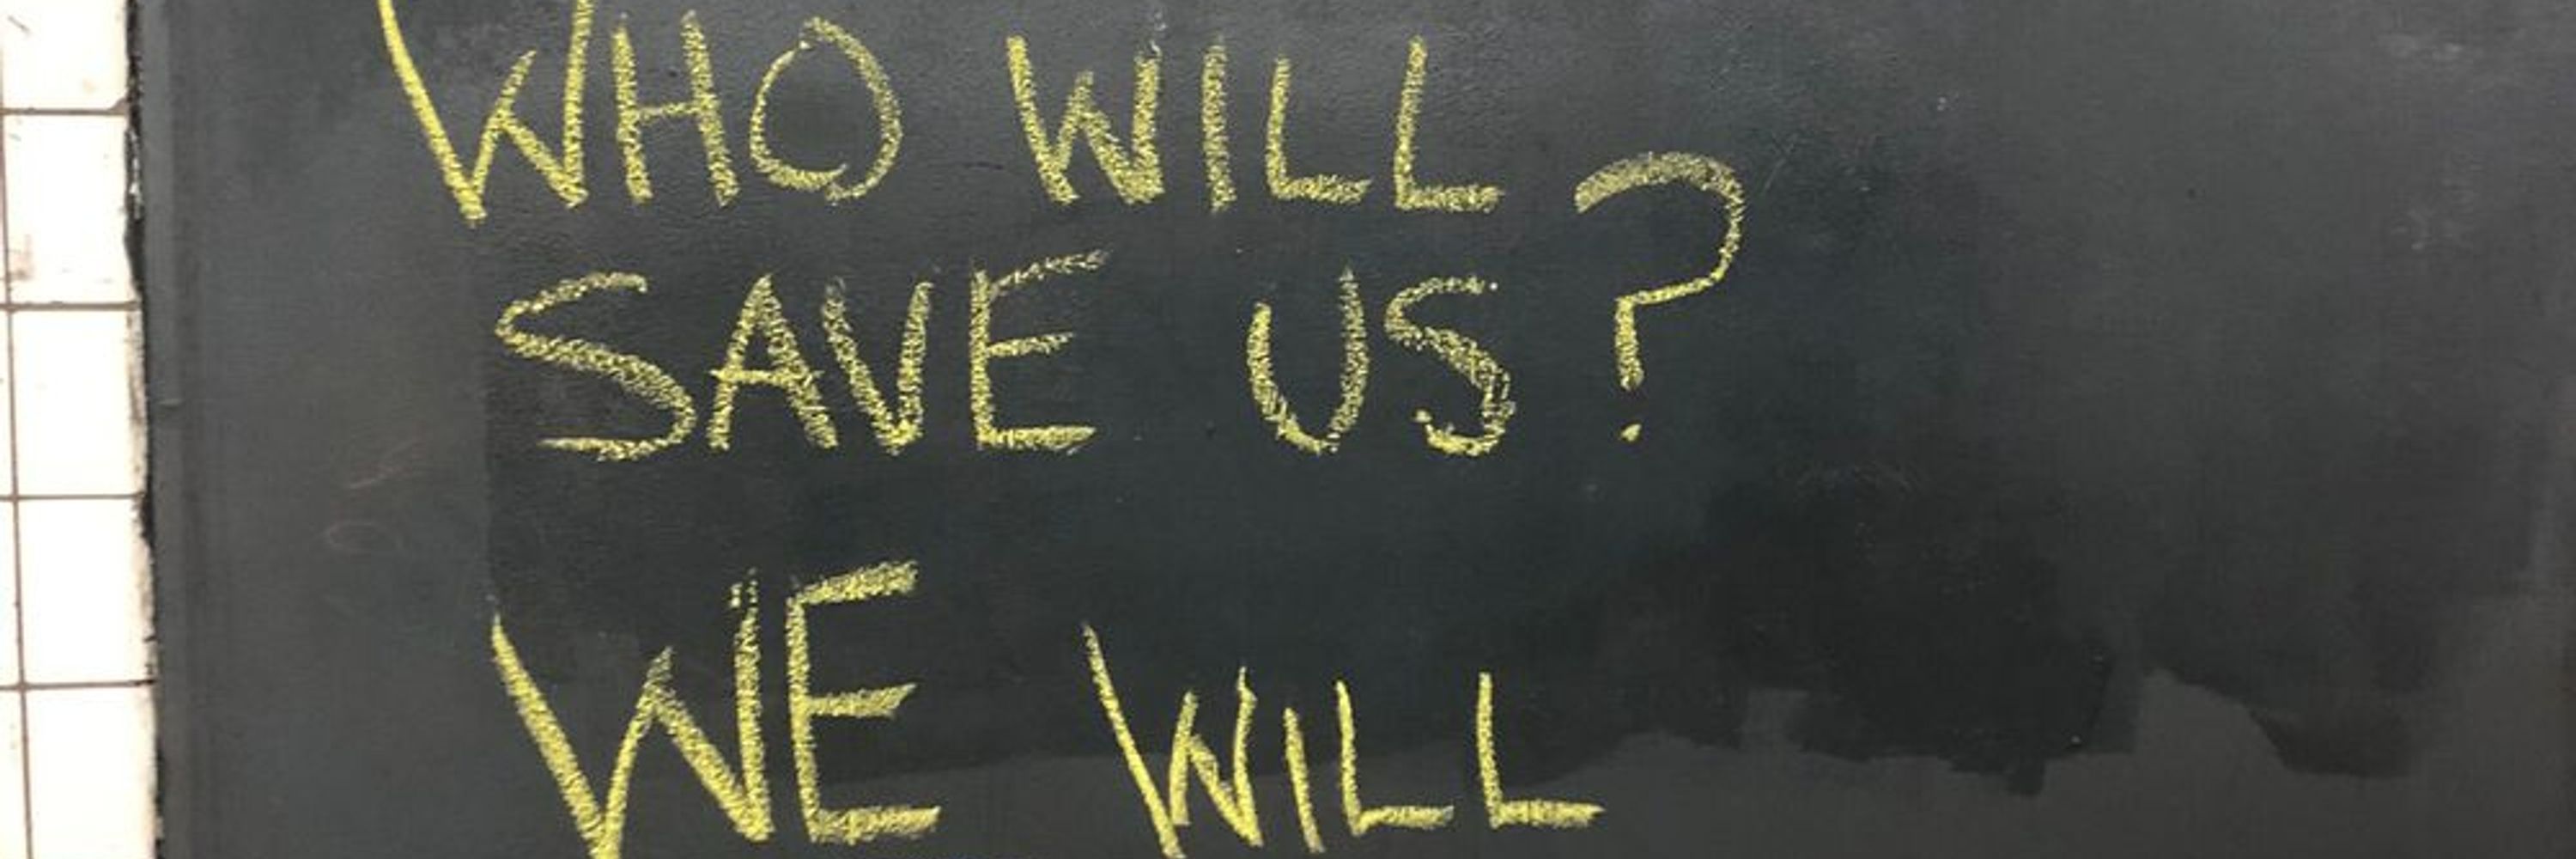 WHO WILL
SAVE US?
WE WILL